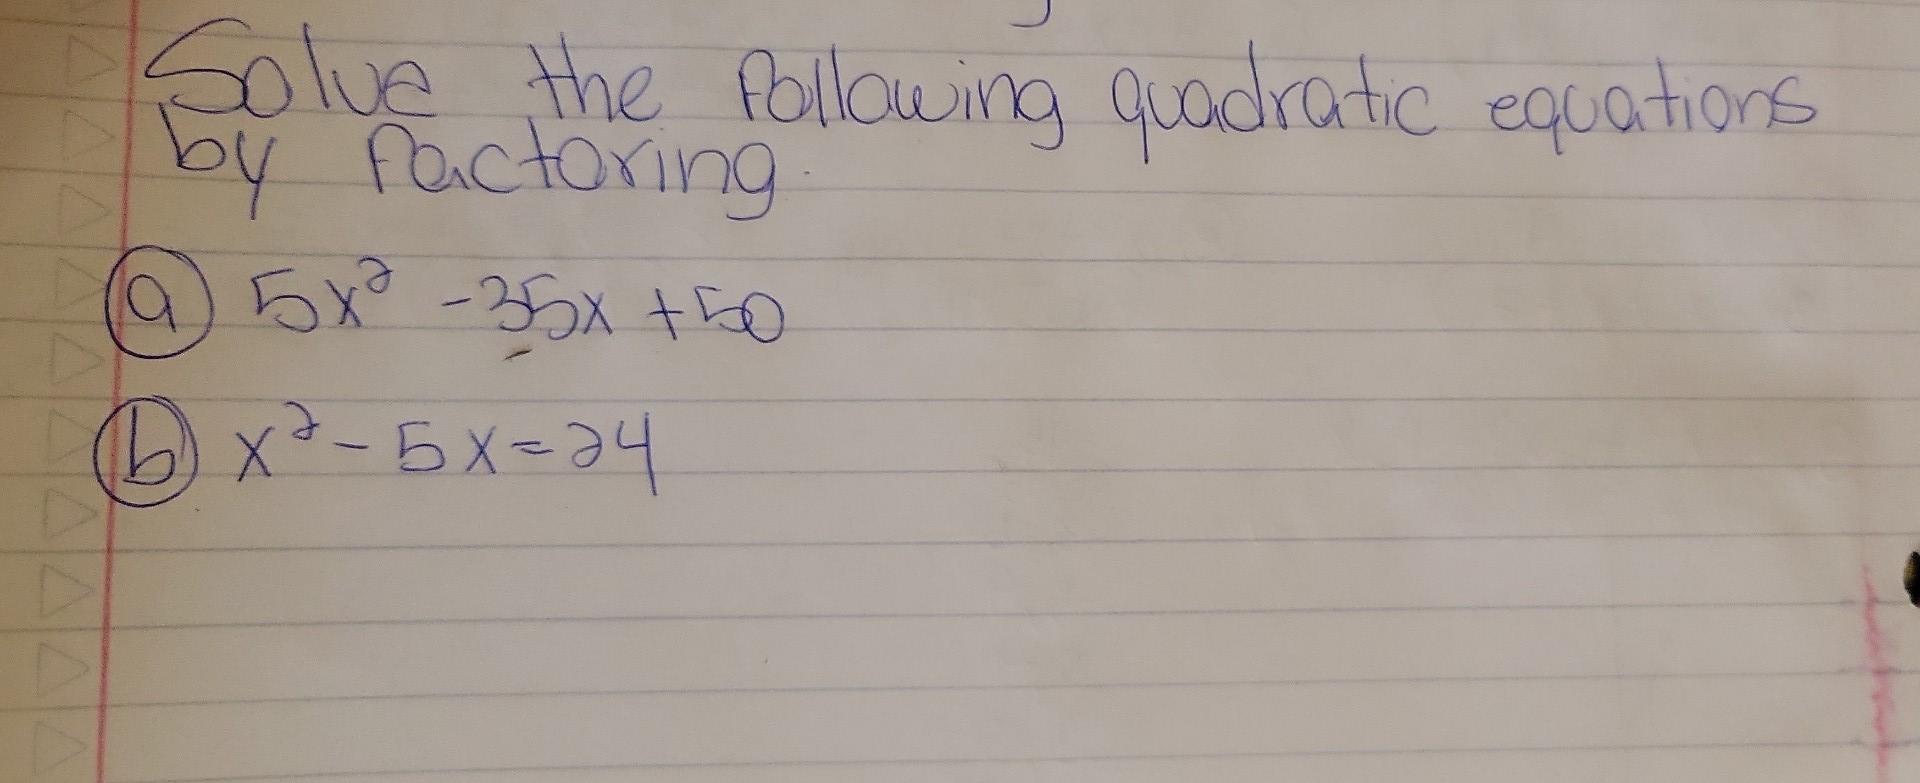 Solve the following quadratic equations
by factoring.
(a) 5x² -35x +50
(b) x² - 5x = 24